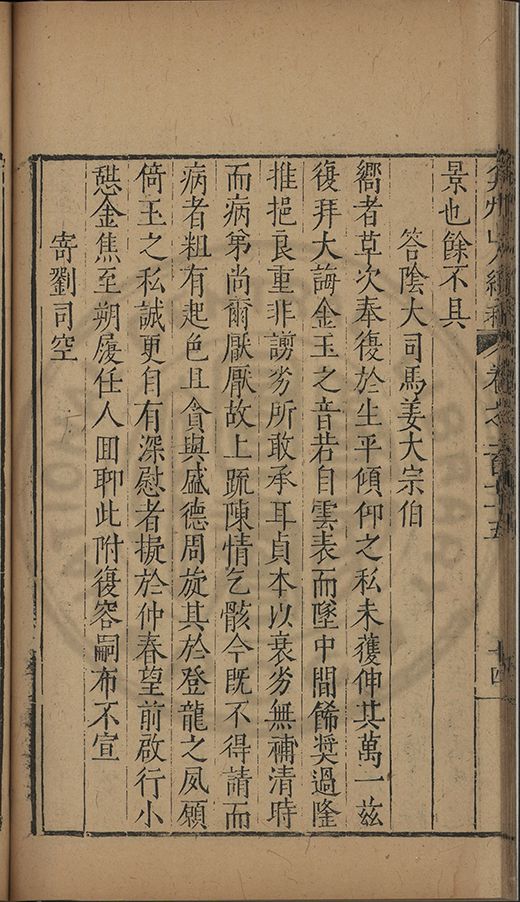 景也餘不具
答陰大司馬姜大宗伯
嚮者草次奉復於生平傾仰之私未獲伸其萬一茲
復拜大誨金玉之音若自雲表而墜中間餙奬過隆
推挹良重非謭劣所敢承耳貞本以衰劣無補清時
而病第尚爾厭厭故上疏陳情乞骸今既不得請而
病者粗有起色且貪與盛德周旋其於登龍之夙願
倚玉之私誠更自有深慰者擬於仲春望前啟行小
憇金焦至朔履任人囬聊此附復容嗣布不宣
寄劉司空